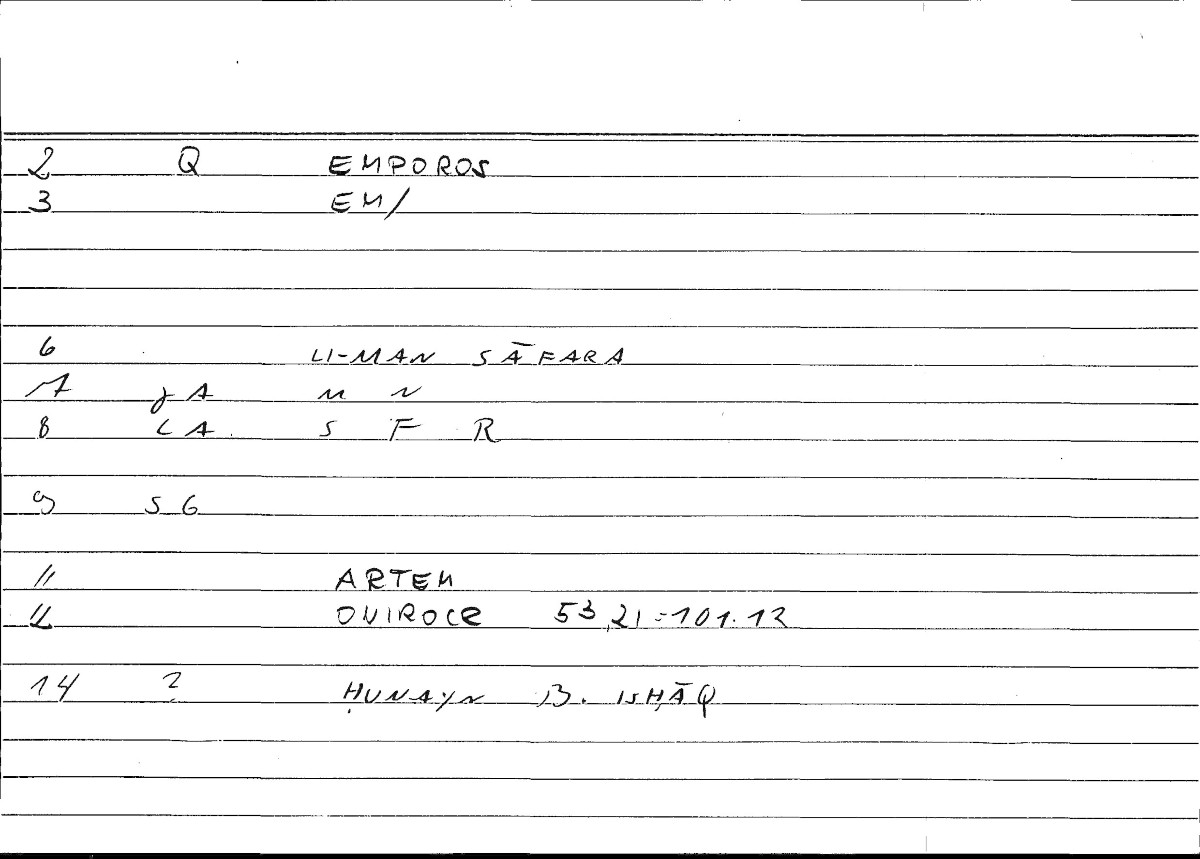 2 Q EMPOROS
3 EM/
6 LI-MAN SĀFARA
7 JA M N
8 LA S F R
9 SG
11 ARTEM
12 ONIROCR 53,21=101.12
14 2 ḤUNAYN B. ISḤĀQ